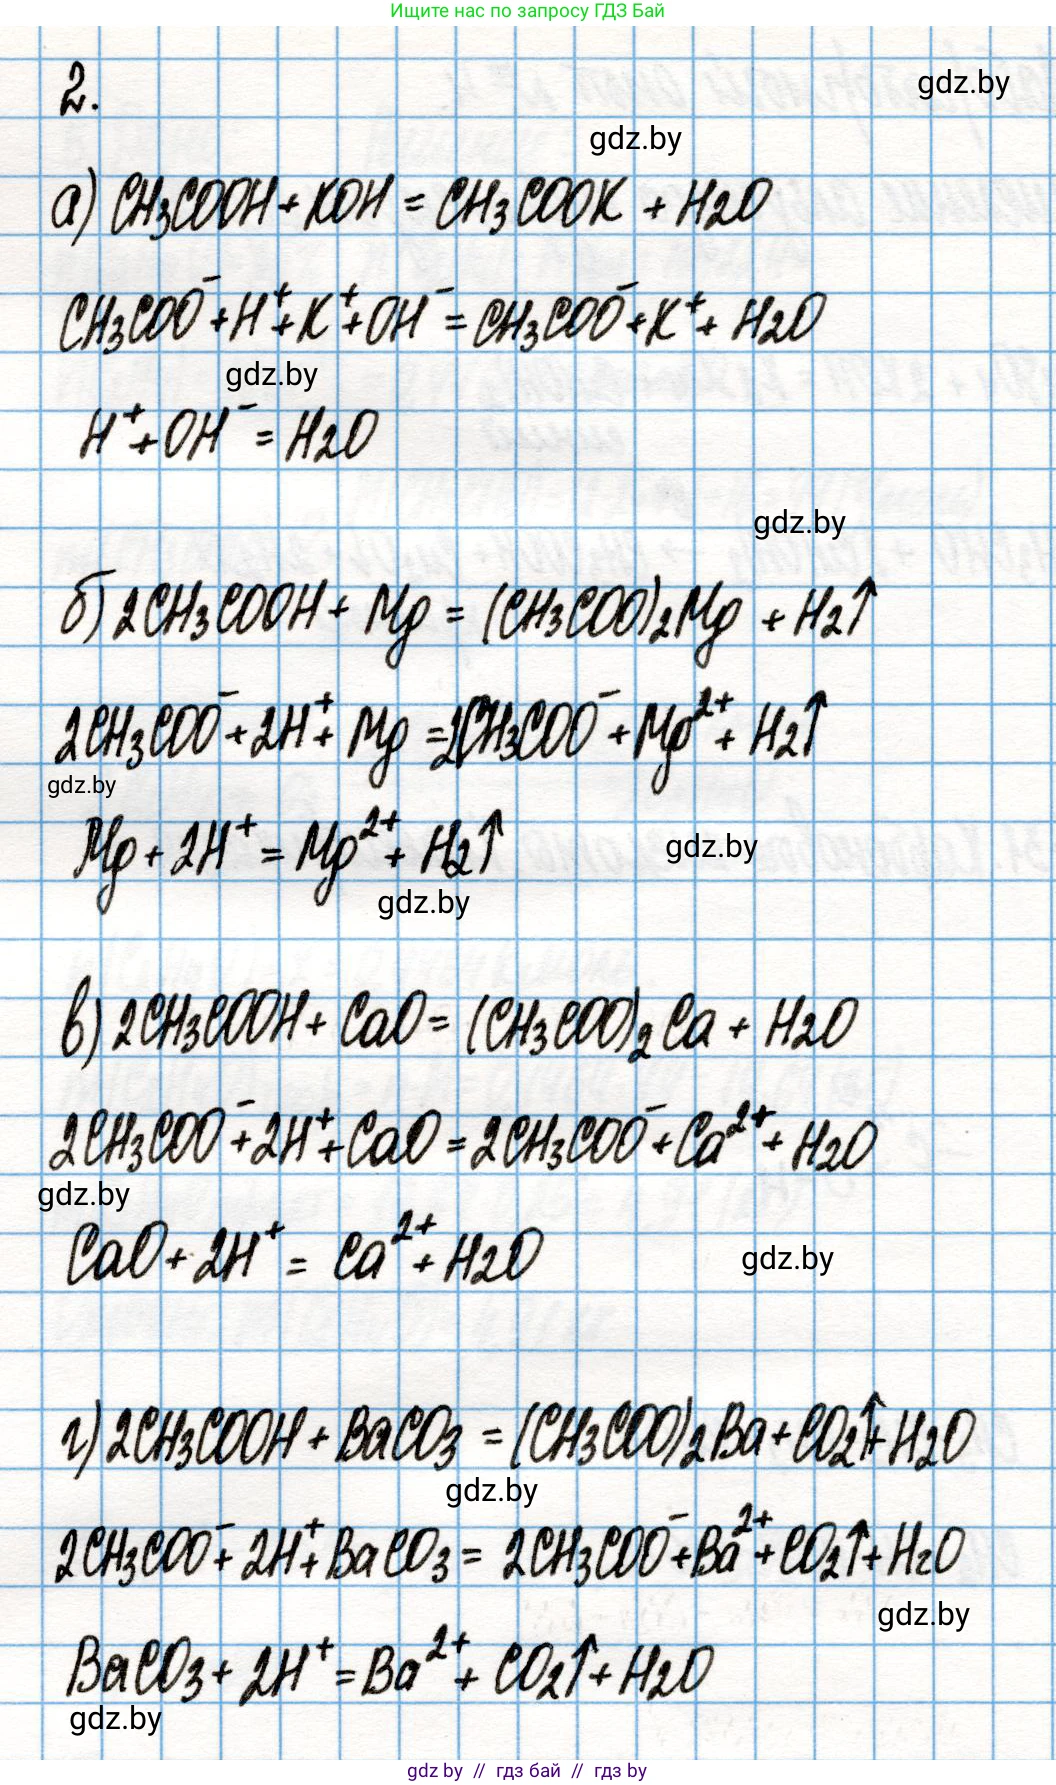 Ищите нас по запросу ГДЗ Бай
2.
gdz.by
gdz.by
а) CH3COOH + KOH = CH3COOK + H2O
CH3COO⁻ + H⁺ + K⁺ + OH⁻ = CH3COO⁻ + K⁺ + H2O
gdz.by
H⁺ + OH⁻ = H2O
gdz.by
б) 2CH3COOH + Mg = (CH3COO)2Mg + H2↑
2CH3COO⁻ + 2H⁺ + Mg = 2CH3COO⁻ + Mg²⁺ + H2↑
gdz.by
Mg + 2H⁺ = Mg²⁺ + H2↑
gdz.by
gdz.by
в) 2CH3COOH + CaO = (CH3COO)2Ca + H2O
2CH3COO⁻ + 2H⁺ + CaO = 2CH3COO⁻ + Ca²⁺ + H2O
gdz.by
CaO + 2H⁺ = Ca²⁺ + H2O
gdz.by
г) 2CH3COOH + BaCO3 = (CH3COO)2Ba + CO2↑ + H2O
gdz.by
2CH3COO⁻ + 2H⁺ + BaCO3 = 2CH3COO⁻ + Ba²⁺ + CO2↑ + H2O
gdz.by
BaCO3 + 2H⁺ = Ba²⁺ + CO2↑ + H2O
gdz.by
gdz by // гдз бай // гдз by